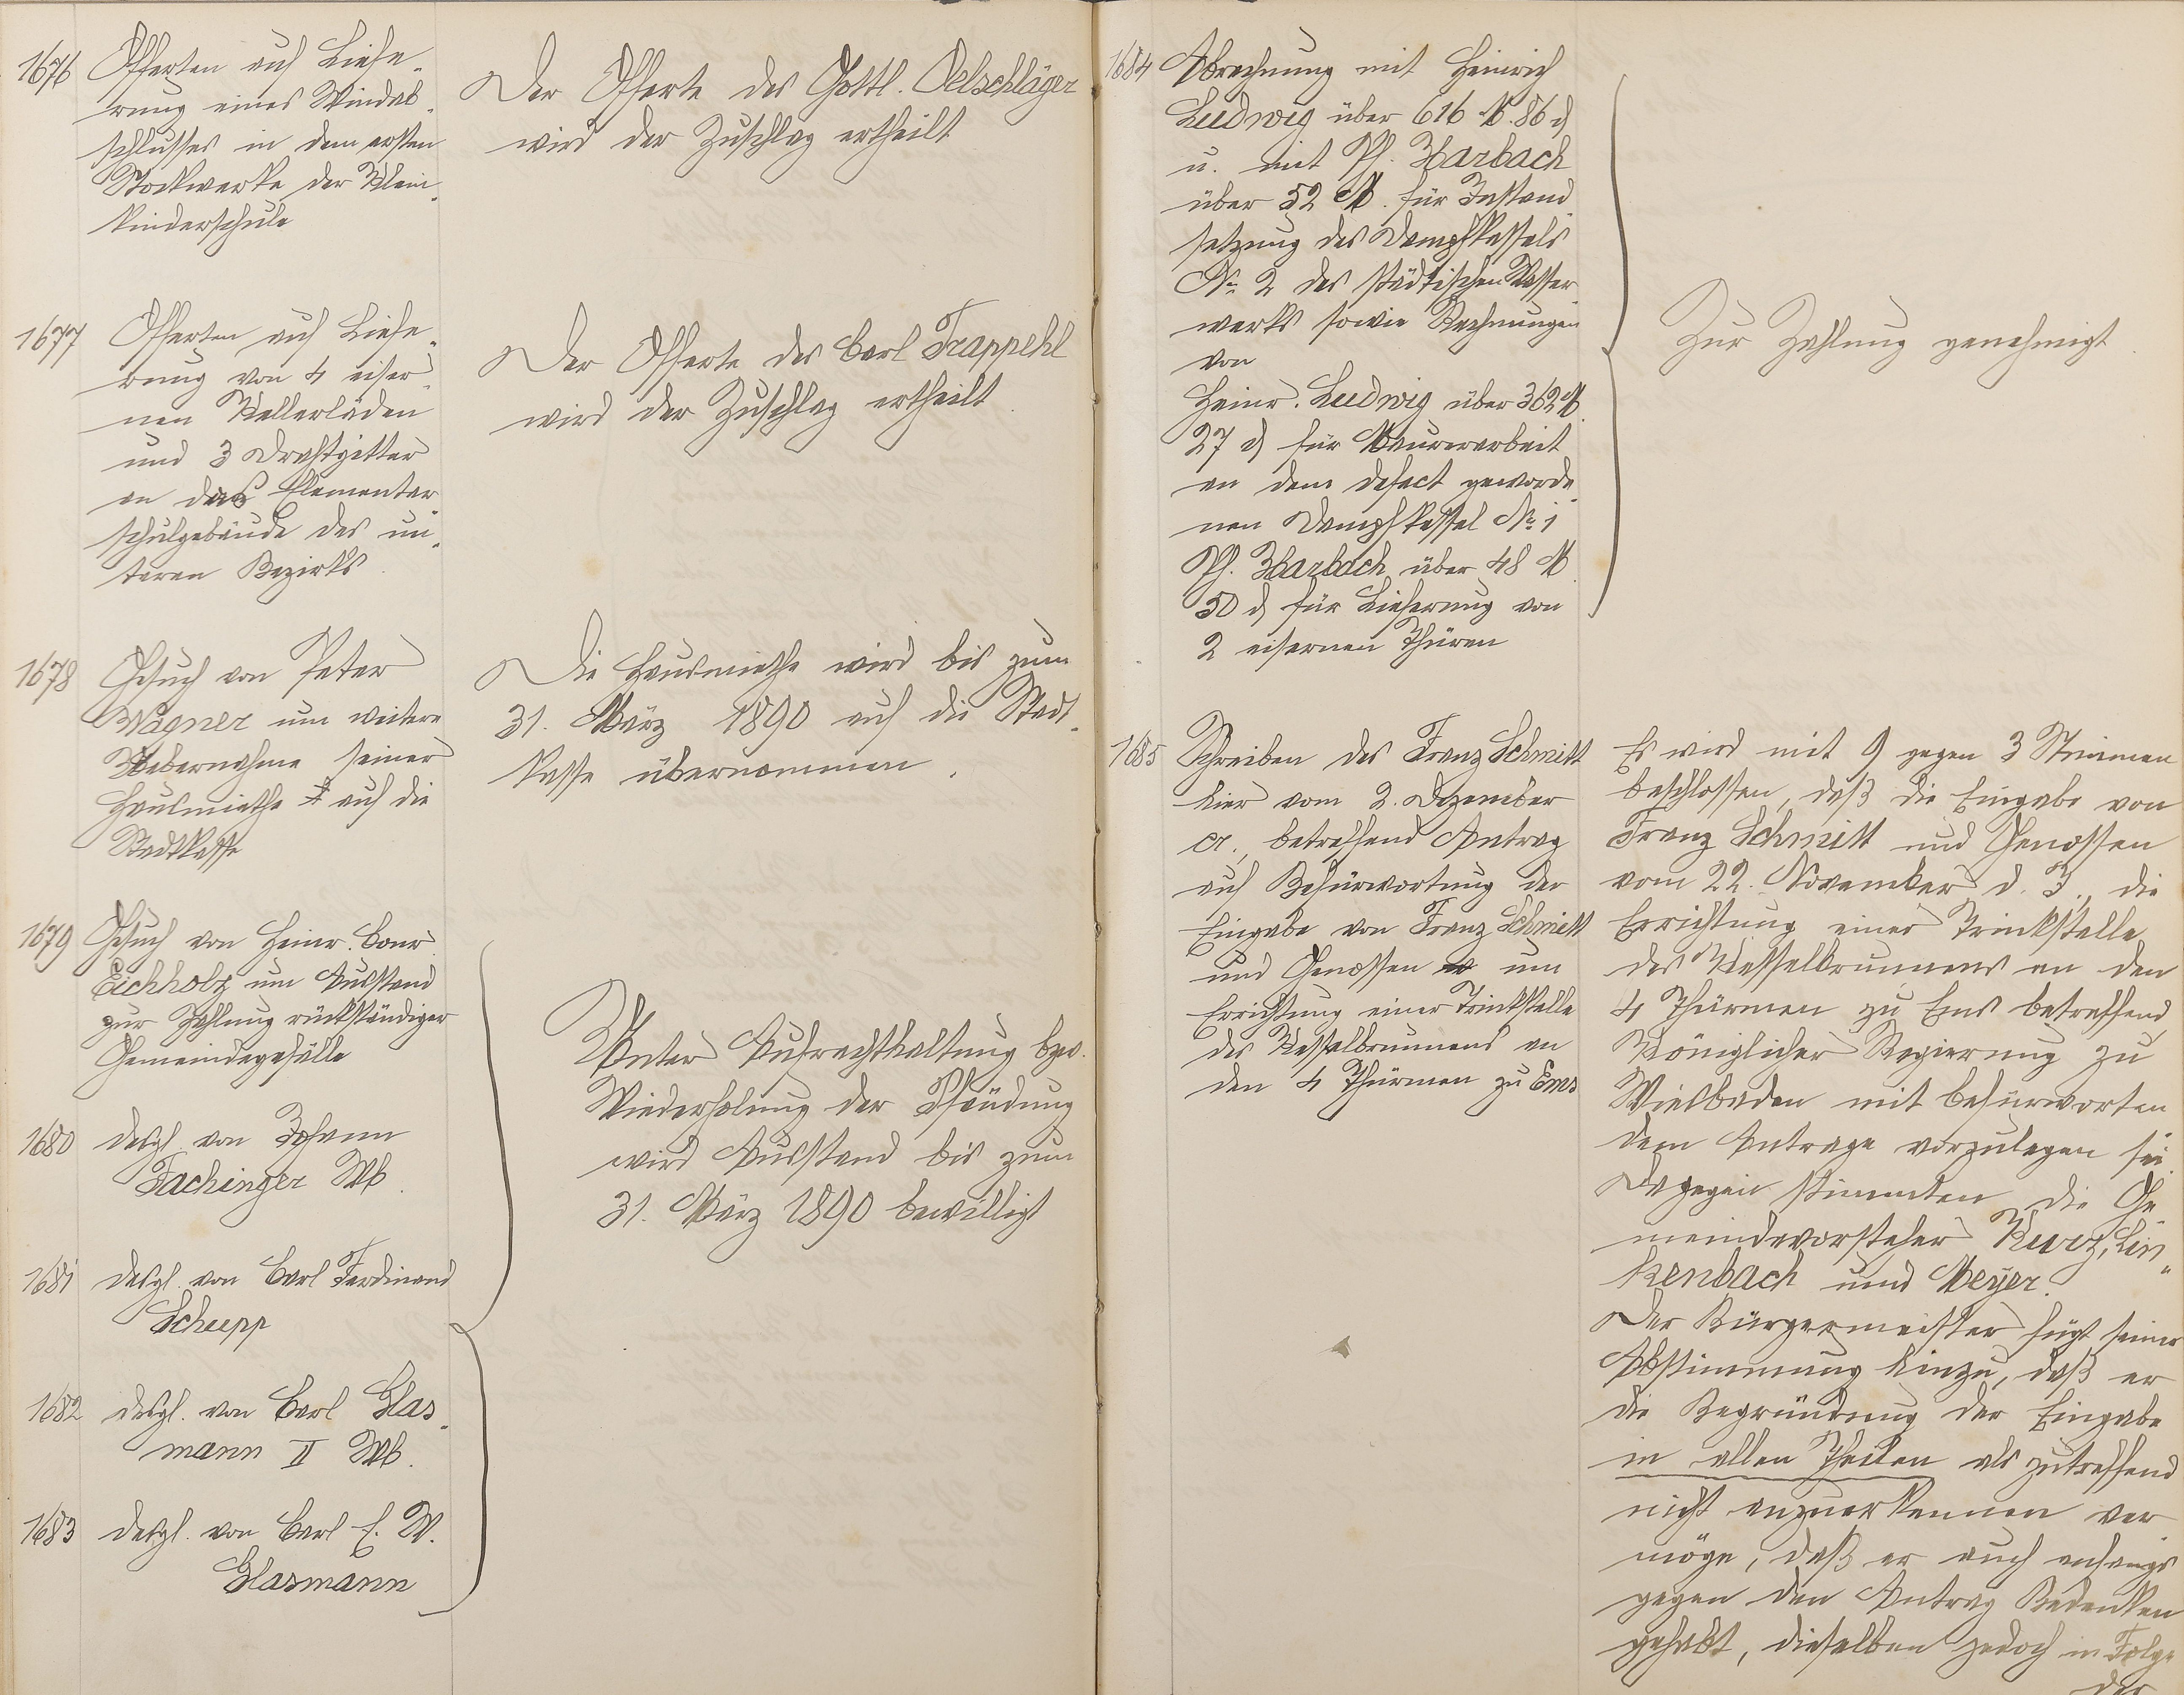 1676 Offerten auf Liefe-
rung eines Windab-
schlusses in dem ersten
Stockwerke der Klein-
kinderschule
Der Offerte des Gottl. Oelschläger
wird der Zuschlag ertheilt
1677 Offerten auf Liefe-
rung von 4 eiser-
nen Kellerläden
und 3 Drahtgitter
an das Elementar-
schulgebäude des un-
teren Bezirks.
Der Offerte des Carl Trappehl
wird der Zuschlag ertheilt.
1678 Gesuch von Peter
Wagner um weitere
Uebernahme seiner
Hausmiethe auf die
Stadtkasse
Die Hausmiethe wird bis zum
31. März 1890 auf die Stadt-
kasse übernommen.
1679 Gesuch von Heinr. Conr.
Eichholz um Ausstand
zur Zahlung rückständiger
Gemeindegefälle
1680 desgl. von Johann
Fachinger Wb.
1681 desgl. von Carl Ferdinand
Schupp
1682 desgl. von Carl Glas-
mann II Wb.
1683 desgl. von Carl E. W.
Glasmann
Unter Aufrechthaltung bzw.
Wiederholung der Pfändung
wird Ausstand bis zum
31. März 1890 bewilligt
1684 Abrechnung mit Heinrich
Ludwig über 616 M. 86 d
u. mit Ph. Harbach
über 52 M. für Instand-
setzung des Dampfkessels
No. 2 des städtischen Wasser-
werks sowie Rechnungen
von
Heinr. Ludwig über 362 M.
27 d für Maurerarbeit
an dem defect geworde-
nen Dampfkessel No. 1
Ph. Harbach über 48 M.
50 d für Lieferung von
2 eisernen Thüren
Zur Zahlung genehmigt.
1685 Schreiben des Franz Schmitt
hier vom 2. Dezember
cr., betreffend Antrag
auf Befürwortung der
Eingabe von Franz Schmitt
und Genossen um
Errichtung einer Trinkstelle
des Kesselbrunnens an
den 4 Thürmen zu Ems
Es wird mit 9 gegen 3 Stimmen
beschlossen, daß die Eingabe von
Franz Schmitt und Genossen
vom 22. November d. J., die
Errichtung einer Trinkstelle
des Kesselbrunnens an den
4 Thürmen zu Ems betreffend,
Königlicher Regierung zu
Wiesbaden mit befürworten
dem Antrage vorzulegen sei.
Dagegen stimmten die Ge-
meindevorsteher Kurz, Lin-
kenbach und Meyer.
Der Bürgermeister fügt seiner
Abstimmung hinzu, daß er
die Begründung der Eingabe
in allen Theilen als zutreffend
nicht anzuerkennen ver-
möge, daß er auch anfangs
gegen den Antrag Bedenken
gehabt, dieselben jedoch in Folge
der